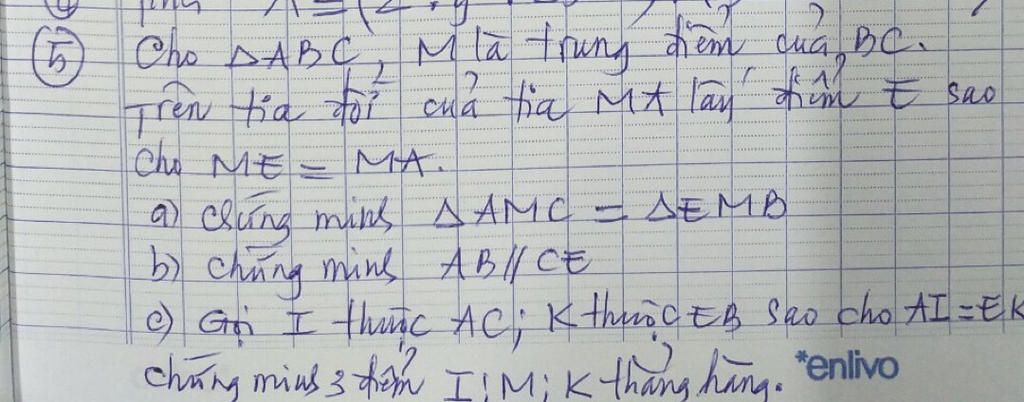 5 Cho △ABC, M là trung điểm của BC.
Trên tia đối của tia MA lấy điểm E sao
cho ME = MA.
a) Chứng minh △AMC = △EMB
b) Chứng minh AB // CE
c) Gọi I thuộc AC; K thuộc EB sao cho AI = EK
Chứng minh 3 điểm I; M; K thẳng hàng.
*enlivo